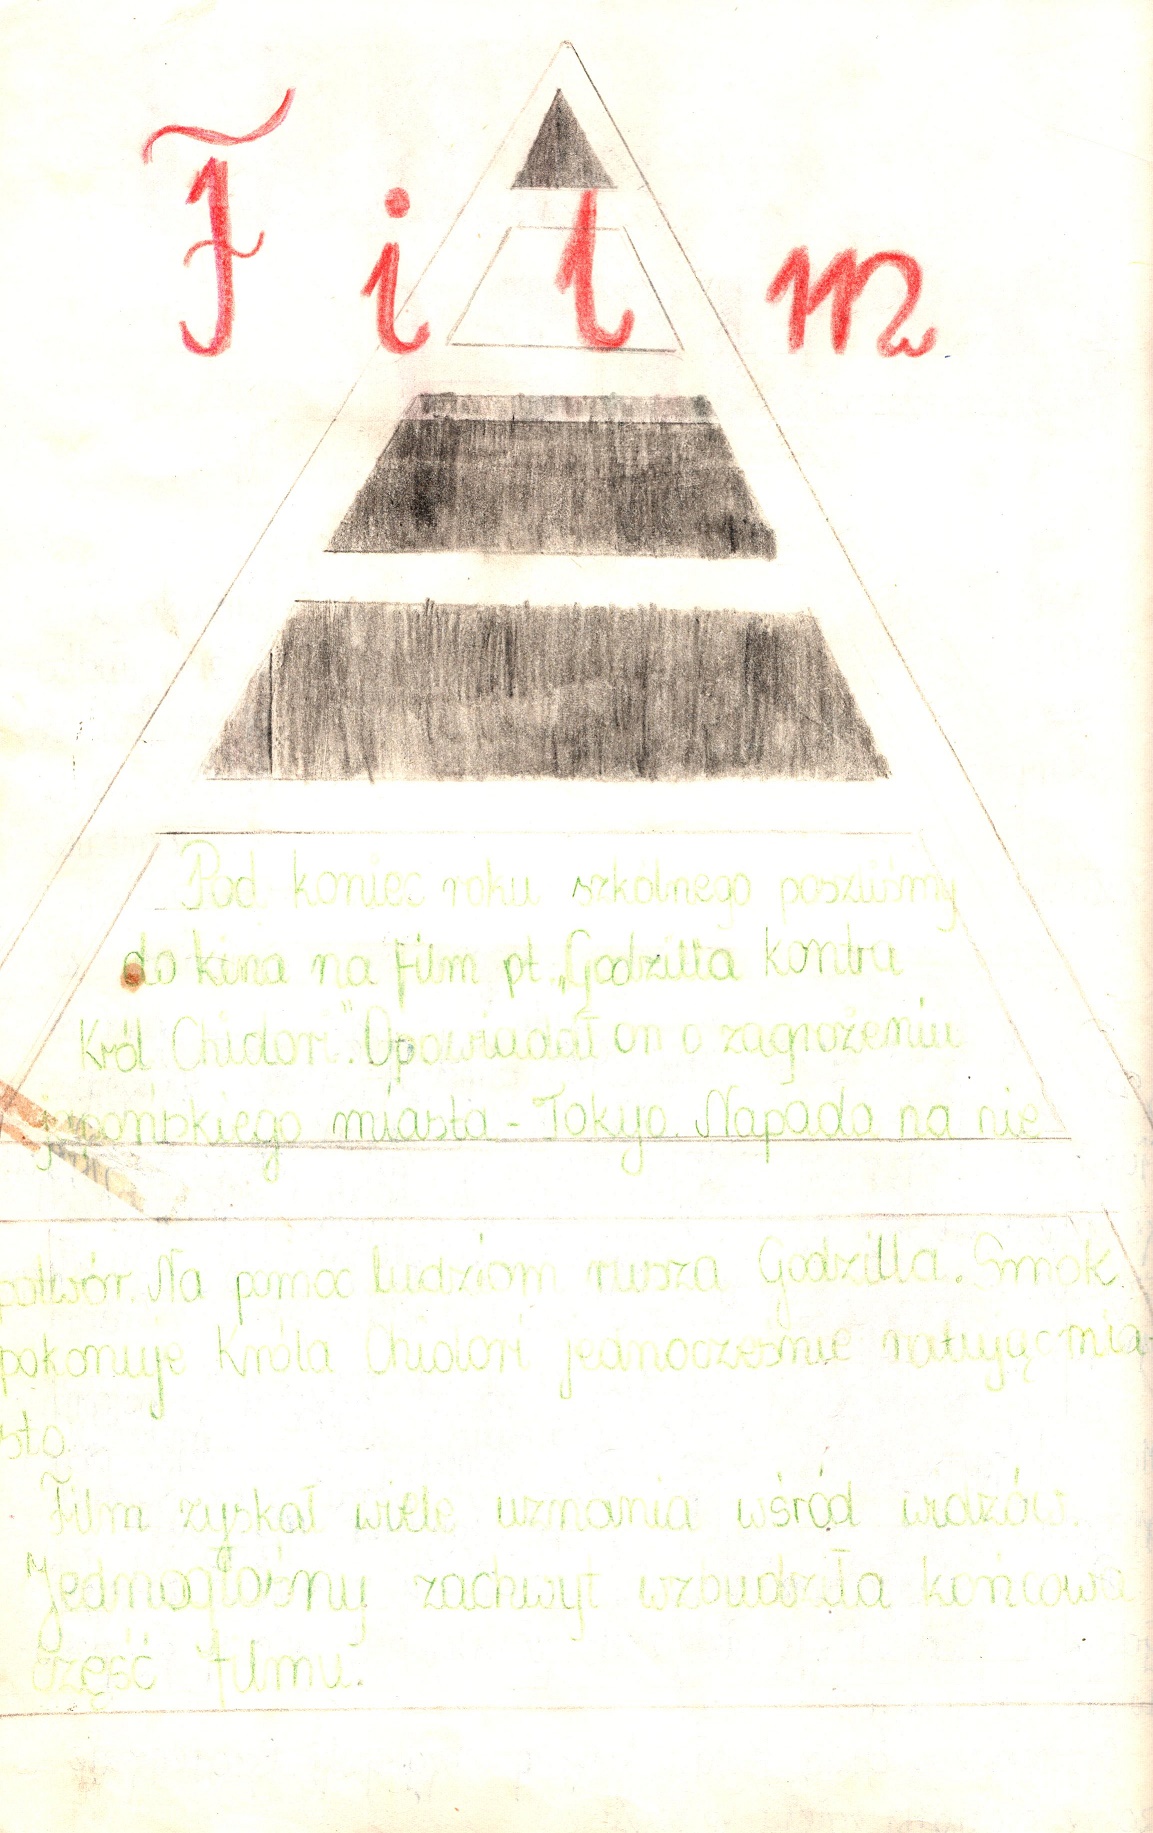 Film
Pod koniec roku szkolnego poszliśmy
do kina na film pt. „Godzilla kontra
Król Chidori". Opowiadał on o zagrożeniu
japońskiego miasta - Tokyo. Napada na nie
potwór. Na pomoc ludziom rusza Godzilla. Smok
pokonuje Króla Chidori jednocześnie ratując mia-
sto.
Film zyskał wiele uznania wśród widzów.
Jednogłośny zachwyt wzbudziła końcowa
część filmu.